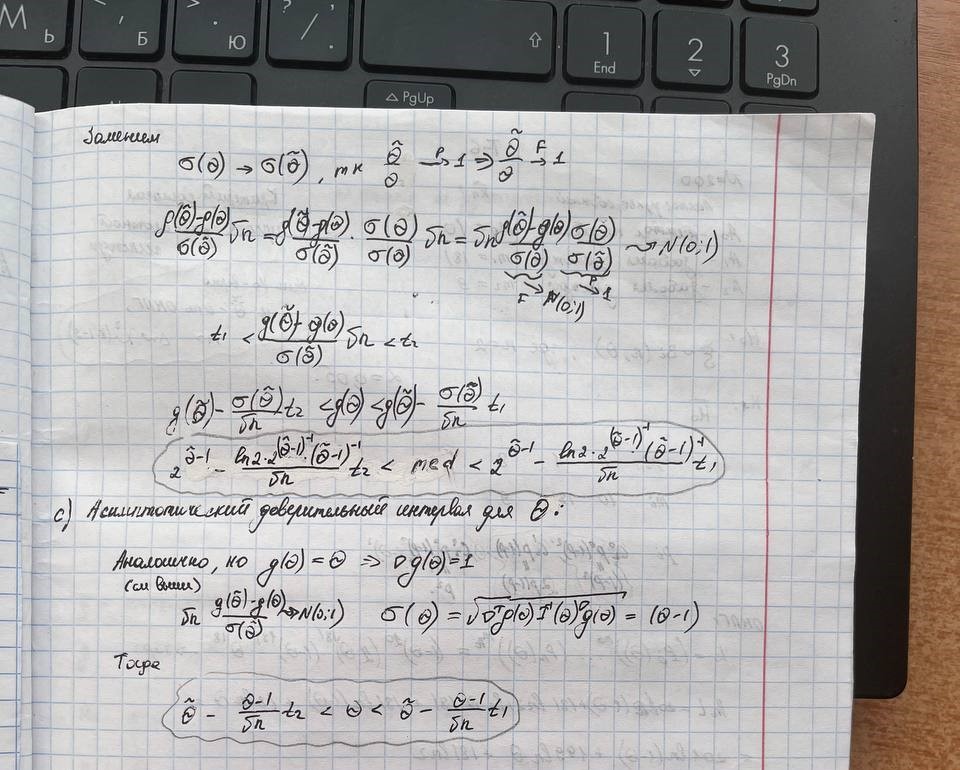 М Ь
Б
> . Ю
? / .
⇧
1 End
2 ▽
3 PgDn
△ PgUp
Заменим
σ(θ) → σ(θ̃), тк θ̃/θ →ᴾ 1 ⇒ θ̃/θ →ᶠ 1
(g(θ̃)-g(θ))/σ(θ̃) √n = (g(θ̃)-g(θ))/σ(θ̃) · σ(θ)/σ(θ) √n = √n (g(θ̃)-g(θ))/σ(θ) σ(θ)/σ(θ̃) ⇝ N(0;1)
F → N(0;1) →ᴾ 1
t₁ < (g(θ̃)-g(θ))/σ(θ̃) √n < t₂
g(θ̃) - σ(θ̃)/√n t₂ < g(θ) < g(θ̃) - σ(θ̃)/√n t₁
2^(θ̃-1)⁻¹ - (ln2·2^(θ̃-1)⁻¹·(θ̃-1)⁻¹)/√n t₂ < med < 2^(θ̃-1)⁻¹ - (ln2·2^(θ̃-1)⁻¹(θ̃-1)⁻¹)/√n t₁
c) Асимптотический доверительный интервал для θ:
Аналогично, но g(θ) = θ ⇒ ∇g(θ) = 1
(см выше)
√n (g(θ̃)-g(θ))/σ(θ̃) ⇝ N(0;1) σ(θ) = √(∇ᵀg(θ) I⁻¹(θ) ∇g(θ)) = (θ-1)
Тогда
θ̃ - (θ-1)/√n t₂ < θ < θ̃ - (θ-1)/√n t₁